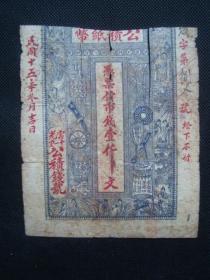 公積紙幣
字第號 拾下不付
憑票付市錢壹仟文
公積錢號
民國十五年月吉日